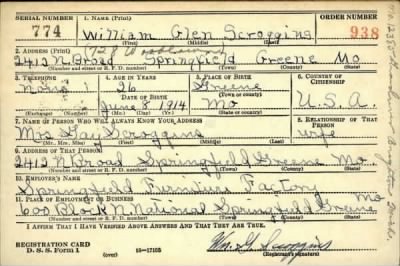 SERIAL NUMBER 1. NAME (Print) ORDER NUMBER
774 William Glen Scroggins 938
(First) (Middle) (Last)
2. ADDRESS (Print)
2412 N. Broad Springfield Greene Mo
(Number and street or R. F. D. number) (Town) (County) (State)
3. TELEPHONE 4. AGE IN YEARS 5. PLACE OF BIRTH 6. COUNTRY OF CITIZENSHIP
None 26 Greene
DATE OF BIRTH (Town or county)
June 8 1914 Mo U.S.A.
(Exchange) (Number) (Mo.) (Day) (Yr.) (State or country)
7. NAME OF PERSON WHO WILL ALWAYS KNOW YOUR ADDRESS 8. RELATIONSHIP OF THAT PERSON
Mrs Gay Scroggins wife
(Mr., Mrs., Miss) (First) (Middle) (Last)
9. ADDRESS OF THAT PERSON
2412 N Broad Springfield Greene Mo.
(Number and street or R. F. D. number) (Town) (County) (State)
10. EMPLOYER'S NAME
Springfield Furniture Factory
11. PLACE OF EMPLOYMENT OR BUSINESS
600 Block N National Springfield Greene Mo
(Number and street or R. F. D. number) (Town) (County) (State)
I AFFIRM THAT I HAVE VERIFIED ABOVE ANSWERS AND THAT THEY ARE TRUE.
REGISTRATION CARD
D. S. S. Form 1 (over) 16—17105 Wm. G. Scroggins
(Registrant's signature)